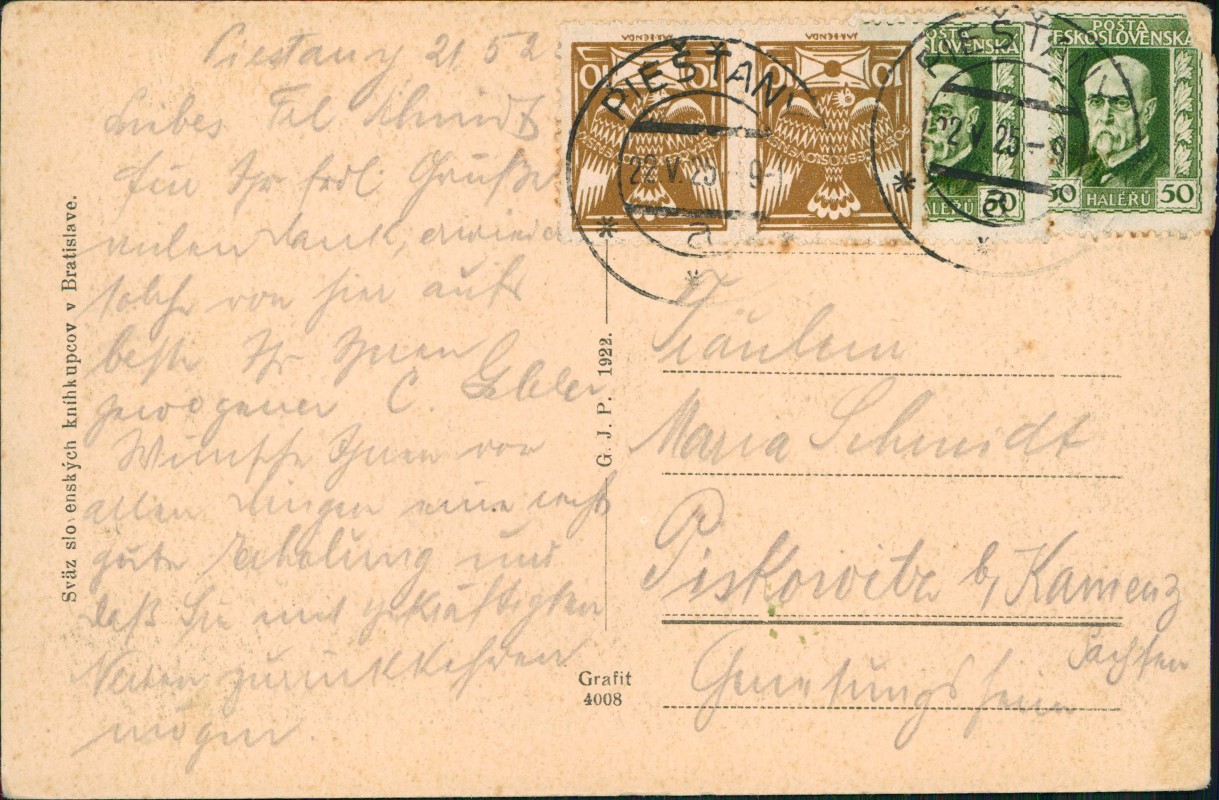 Pieštany 21 5 25
Liebes Frl Schmidt
Für Ihr frdl. Grüße
vielen Dank, erwiedre
solche von hier aufs
beste Ihr Ihnen
gewogener C.
Wünsche Ihnen vor
allen Dingen eine recht
gute Erholung und
daß Sie mit gekräftigten
Nerven zurückkehren
mögen.
Sväz slovenských knihkupcov v Bratislave.
G. J. P. 1922.
Grafit
4008
PIEŠŤANY
22 V. 25 - 9
a
PIEŠŤANY
22 V. 25 - 9
a
POŠTA
ČESKOSLOVENSKÁ
50 HALÉŘŮ
POŠTA
ČESKOSLOVENSKÁ
50 HALÉŘŮ 50
Fräulein
Maria Schmidt
Piskowitz b/ Kamenz
Sachsen
Genesungsheim